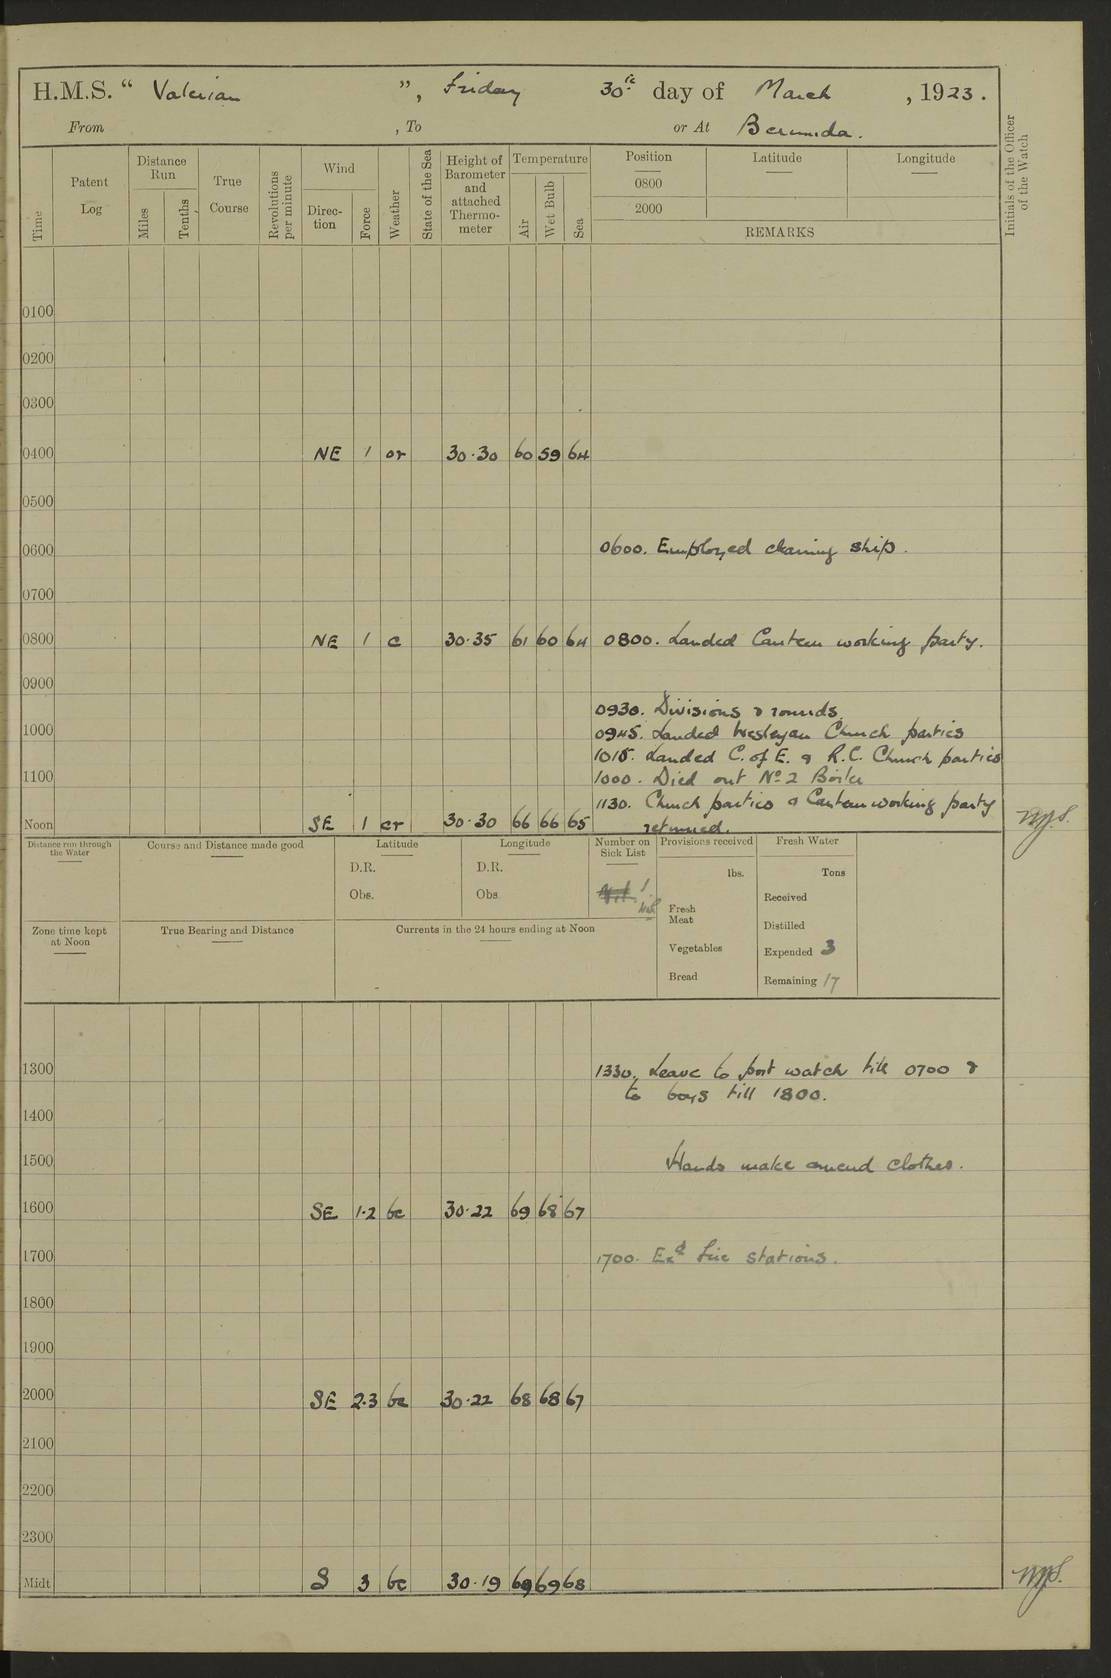 H.M.S. “ Valerian ”, Friday 30th day of March , 1923.
From , To or At Bermuda.
Time
Patent Log
Distance Run
Miles
Tenths
True Course
Revolutions per minute
Wind
Direc-tion
Force
Weather
State of the Sea
Height of Barometer and attached Thermo-meter
Temperature
Air
Wet Bulb
Sea
Position
0800
2000
Latitude
Longitude
REMARKS
Initials of the Officer of the Watch
0100
0200
0300
0400 NE 1 or 30.30 60 59 64
0500
0600 0600. Employed cleaning ship.
0700
0800 NE 1 c 30.35 61 60 64 0800. Landed Canteen working party.
0900
0930. Divisions & rounds.
1000 0945. Landed Wesleyan Church parties
1015. Landed C. of E. & R.C. Church parties
1100 1000. Died out No 2 Boiler
1130. Church parties & Canteen working party
Noon SE 1 cr 30.30 66 66 65 returned.
Distance run through the Water
Course and Distance made good
Latitude
D.R.
Obs.
Longitude
D.R.
Obs.
Number on Sick List
1
Provisions received
lbs.
Fresh Meat
Vegetables
Bread
Fresh Water
Tons
Received
Distilled
Expended 3
Remaining 17
Zone time kept at Noon
True Bearing and Distance
Currents in the 24 hours ending at Noon
1300 1330. Leave to port watch till 0700 &
to boys till 1800.
1400
1500 Hands make & mend clothes.
1600 SE 1.2 bc 30.22 69 68 67
1700 1700. Exd fire stations.
1800
1900
2000 SE 2.3 bc 30.22 68 68 67
2100
2200
2300
Midt S 3 bc 30.19 69 69 68